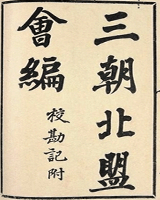 三朝北盟
會編
校勘記附